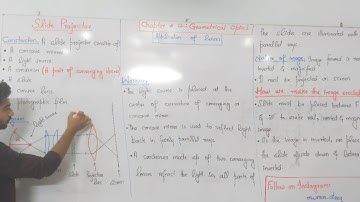 Slide Projector
Construction: A slide projector consists of
A concave mirror
A light source
A condenser (A pair of converging lenses)
A slide
convex lens
photographic film
Light Source
Slide
Projector
Lens
Screen
Chapter # 12: Geometrical Optics
Application of Lenses
Working:
The light source is placed at the
centre of curvature of converging or
concave mirror
The concave mirror is used to reflect light
back in fairly parallel rays
A condenser made up of two converging
lenses refract the light so all parts of
the slide are illuminated with
parallel rays
Nature of image: Image formed is real
inverted & magnified
It must be projected on screen
How we make the image erected
Slide must be placed between F
& 2F to make real, inverted & magnified
image
As the image is inverted, we place
the slide upside down & laterally
inverted
Follow on Instagram: